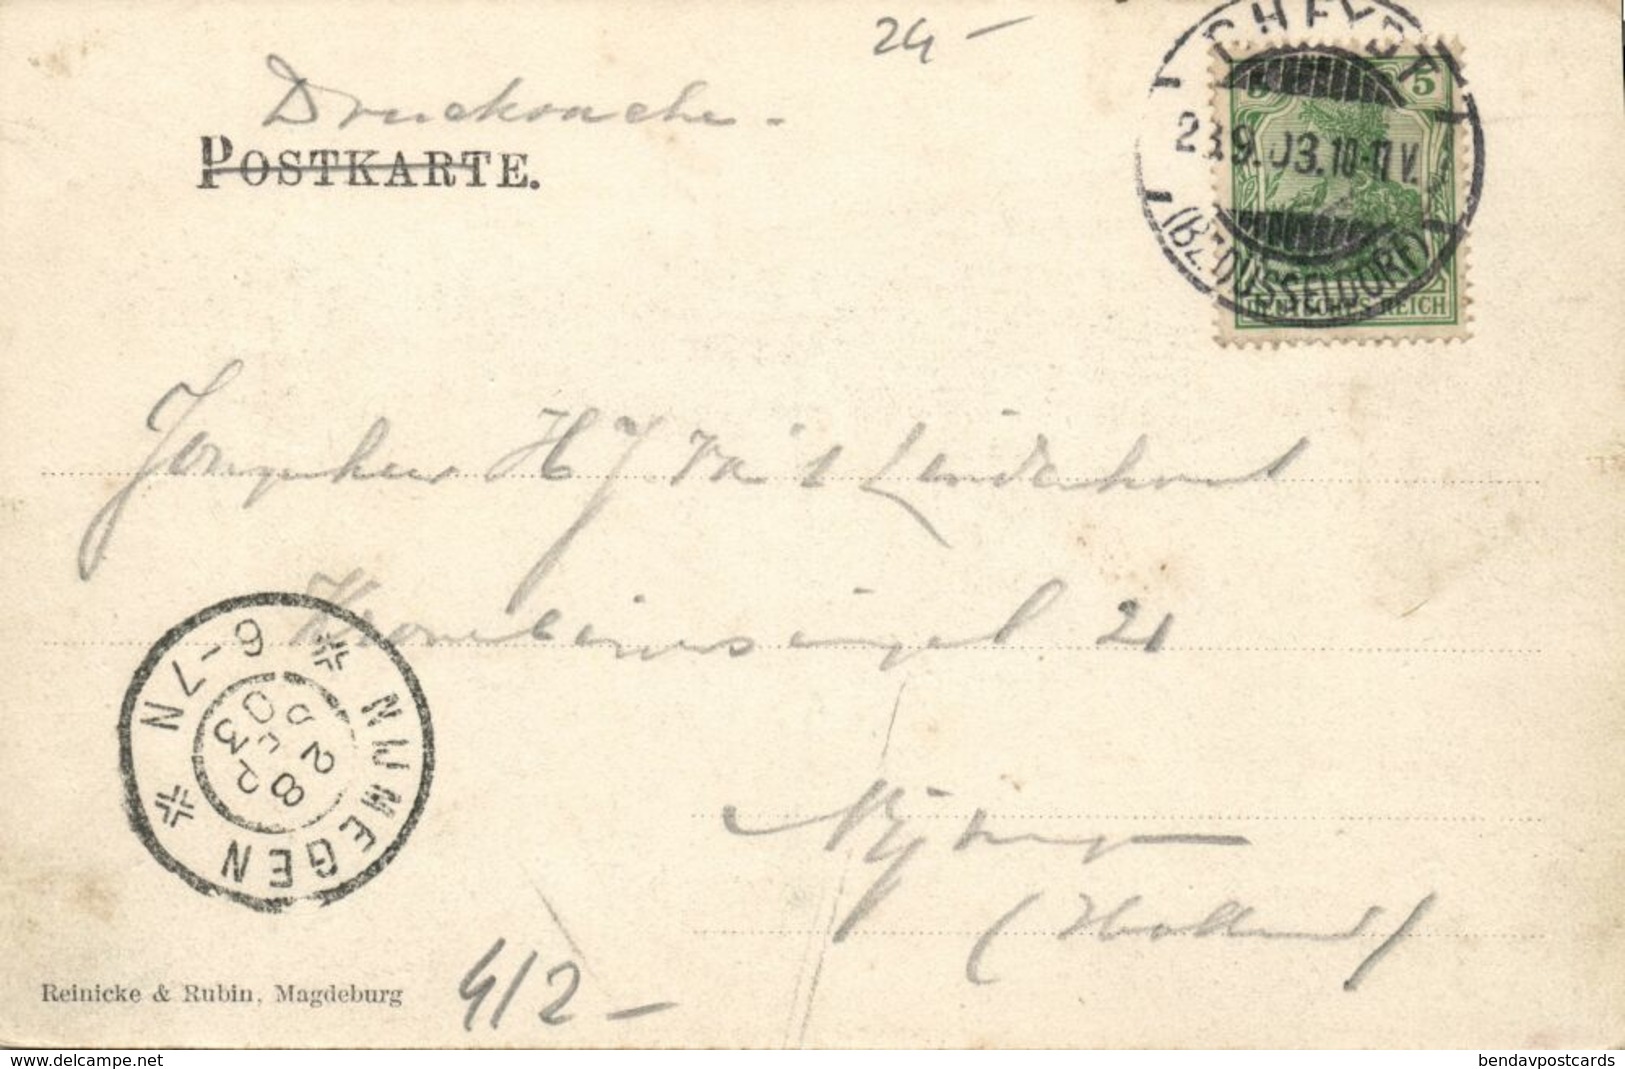 24 –
Drucksache.
POSTKARTE.
RHEYDT
5
23.9.03.10-11V.
(BZ. DÜSSELDORF)
DEUTSCHES REICH
Jonkheer H J van 't Lindenhout
Kronenburgersingel 21
Nijmegen
(Holland)
6-7N
NIJMEGEN
Reinicke & Rubin, Magdeburg
412 –
www.delcampe.net
bendavpostcards